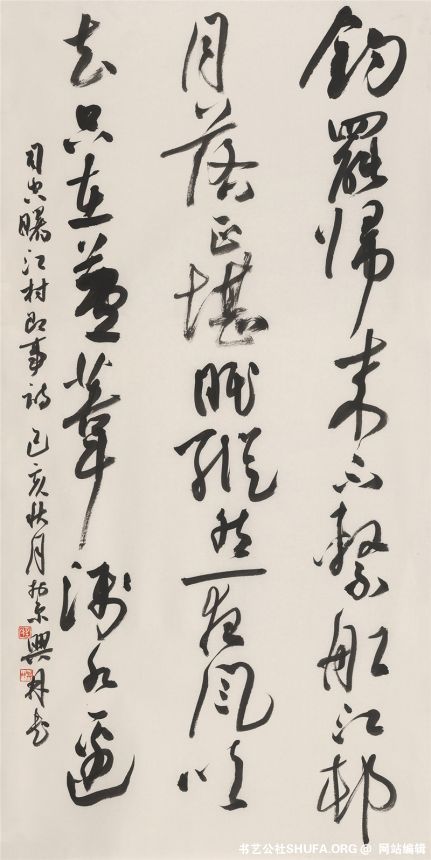 釣罷帰来不繫船江邨
月落正堪眠縱然一夜風吹
去只在蘆葦淺水邊
司空曙江村即事詩 己亥秋月於京興書
书艺公社SHUFA.ORG @ 网站编辑